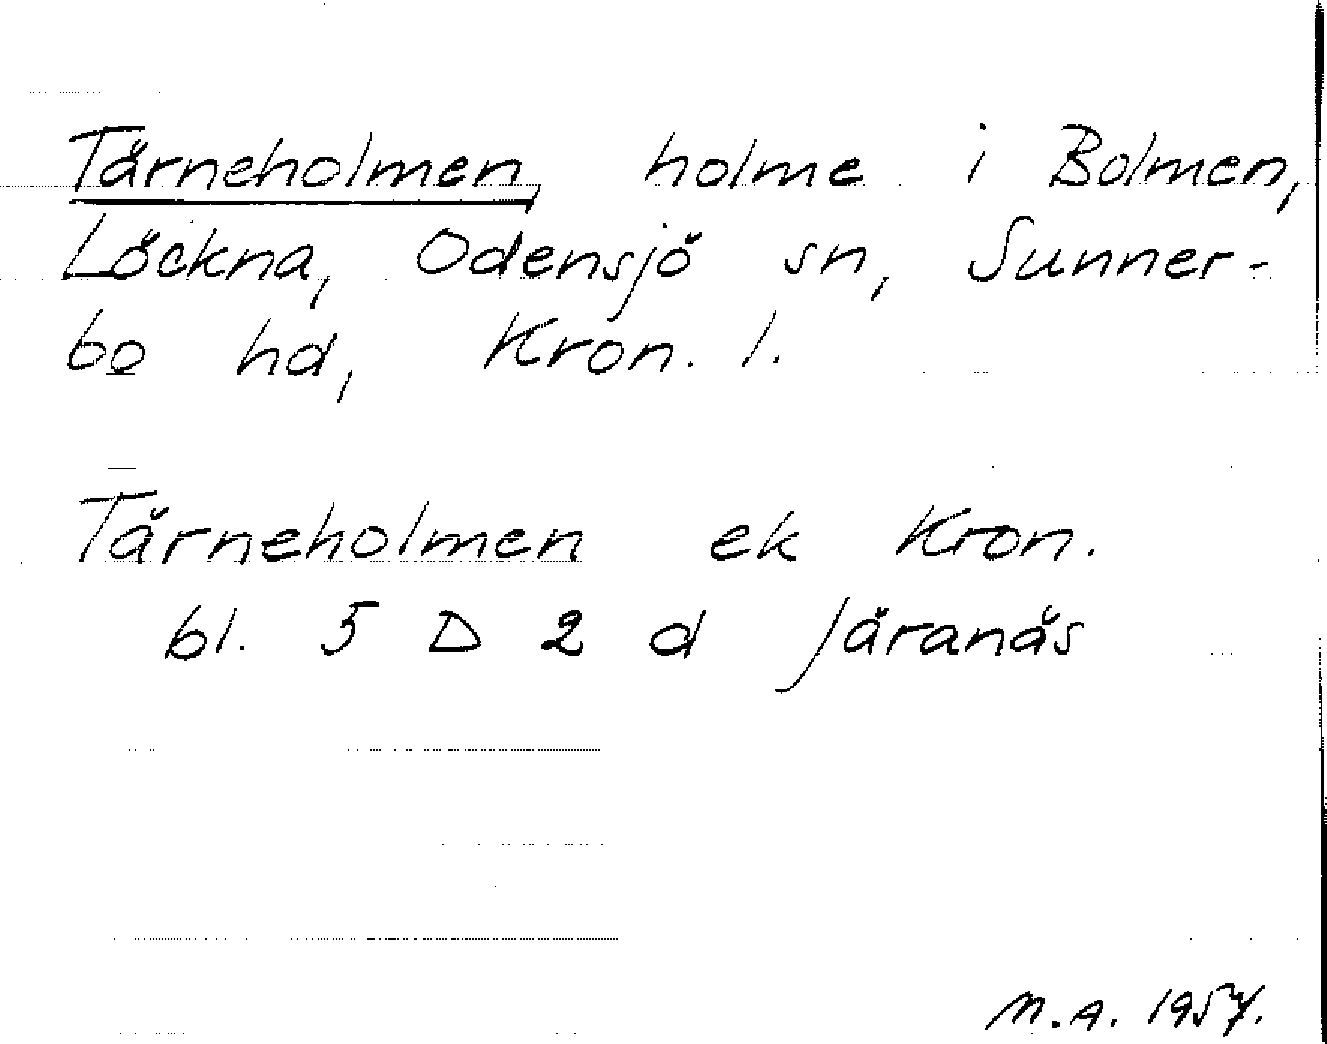 Tärneholmen, holme i Bolmen,
Löckna, Odensjö sn, Sunner-
bo hd, Kron. l.
Tärneholmen ek Kron.
bl. 5 D 2 d Järanäs
M.A. 1957.